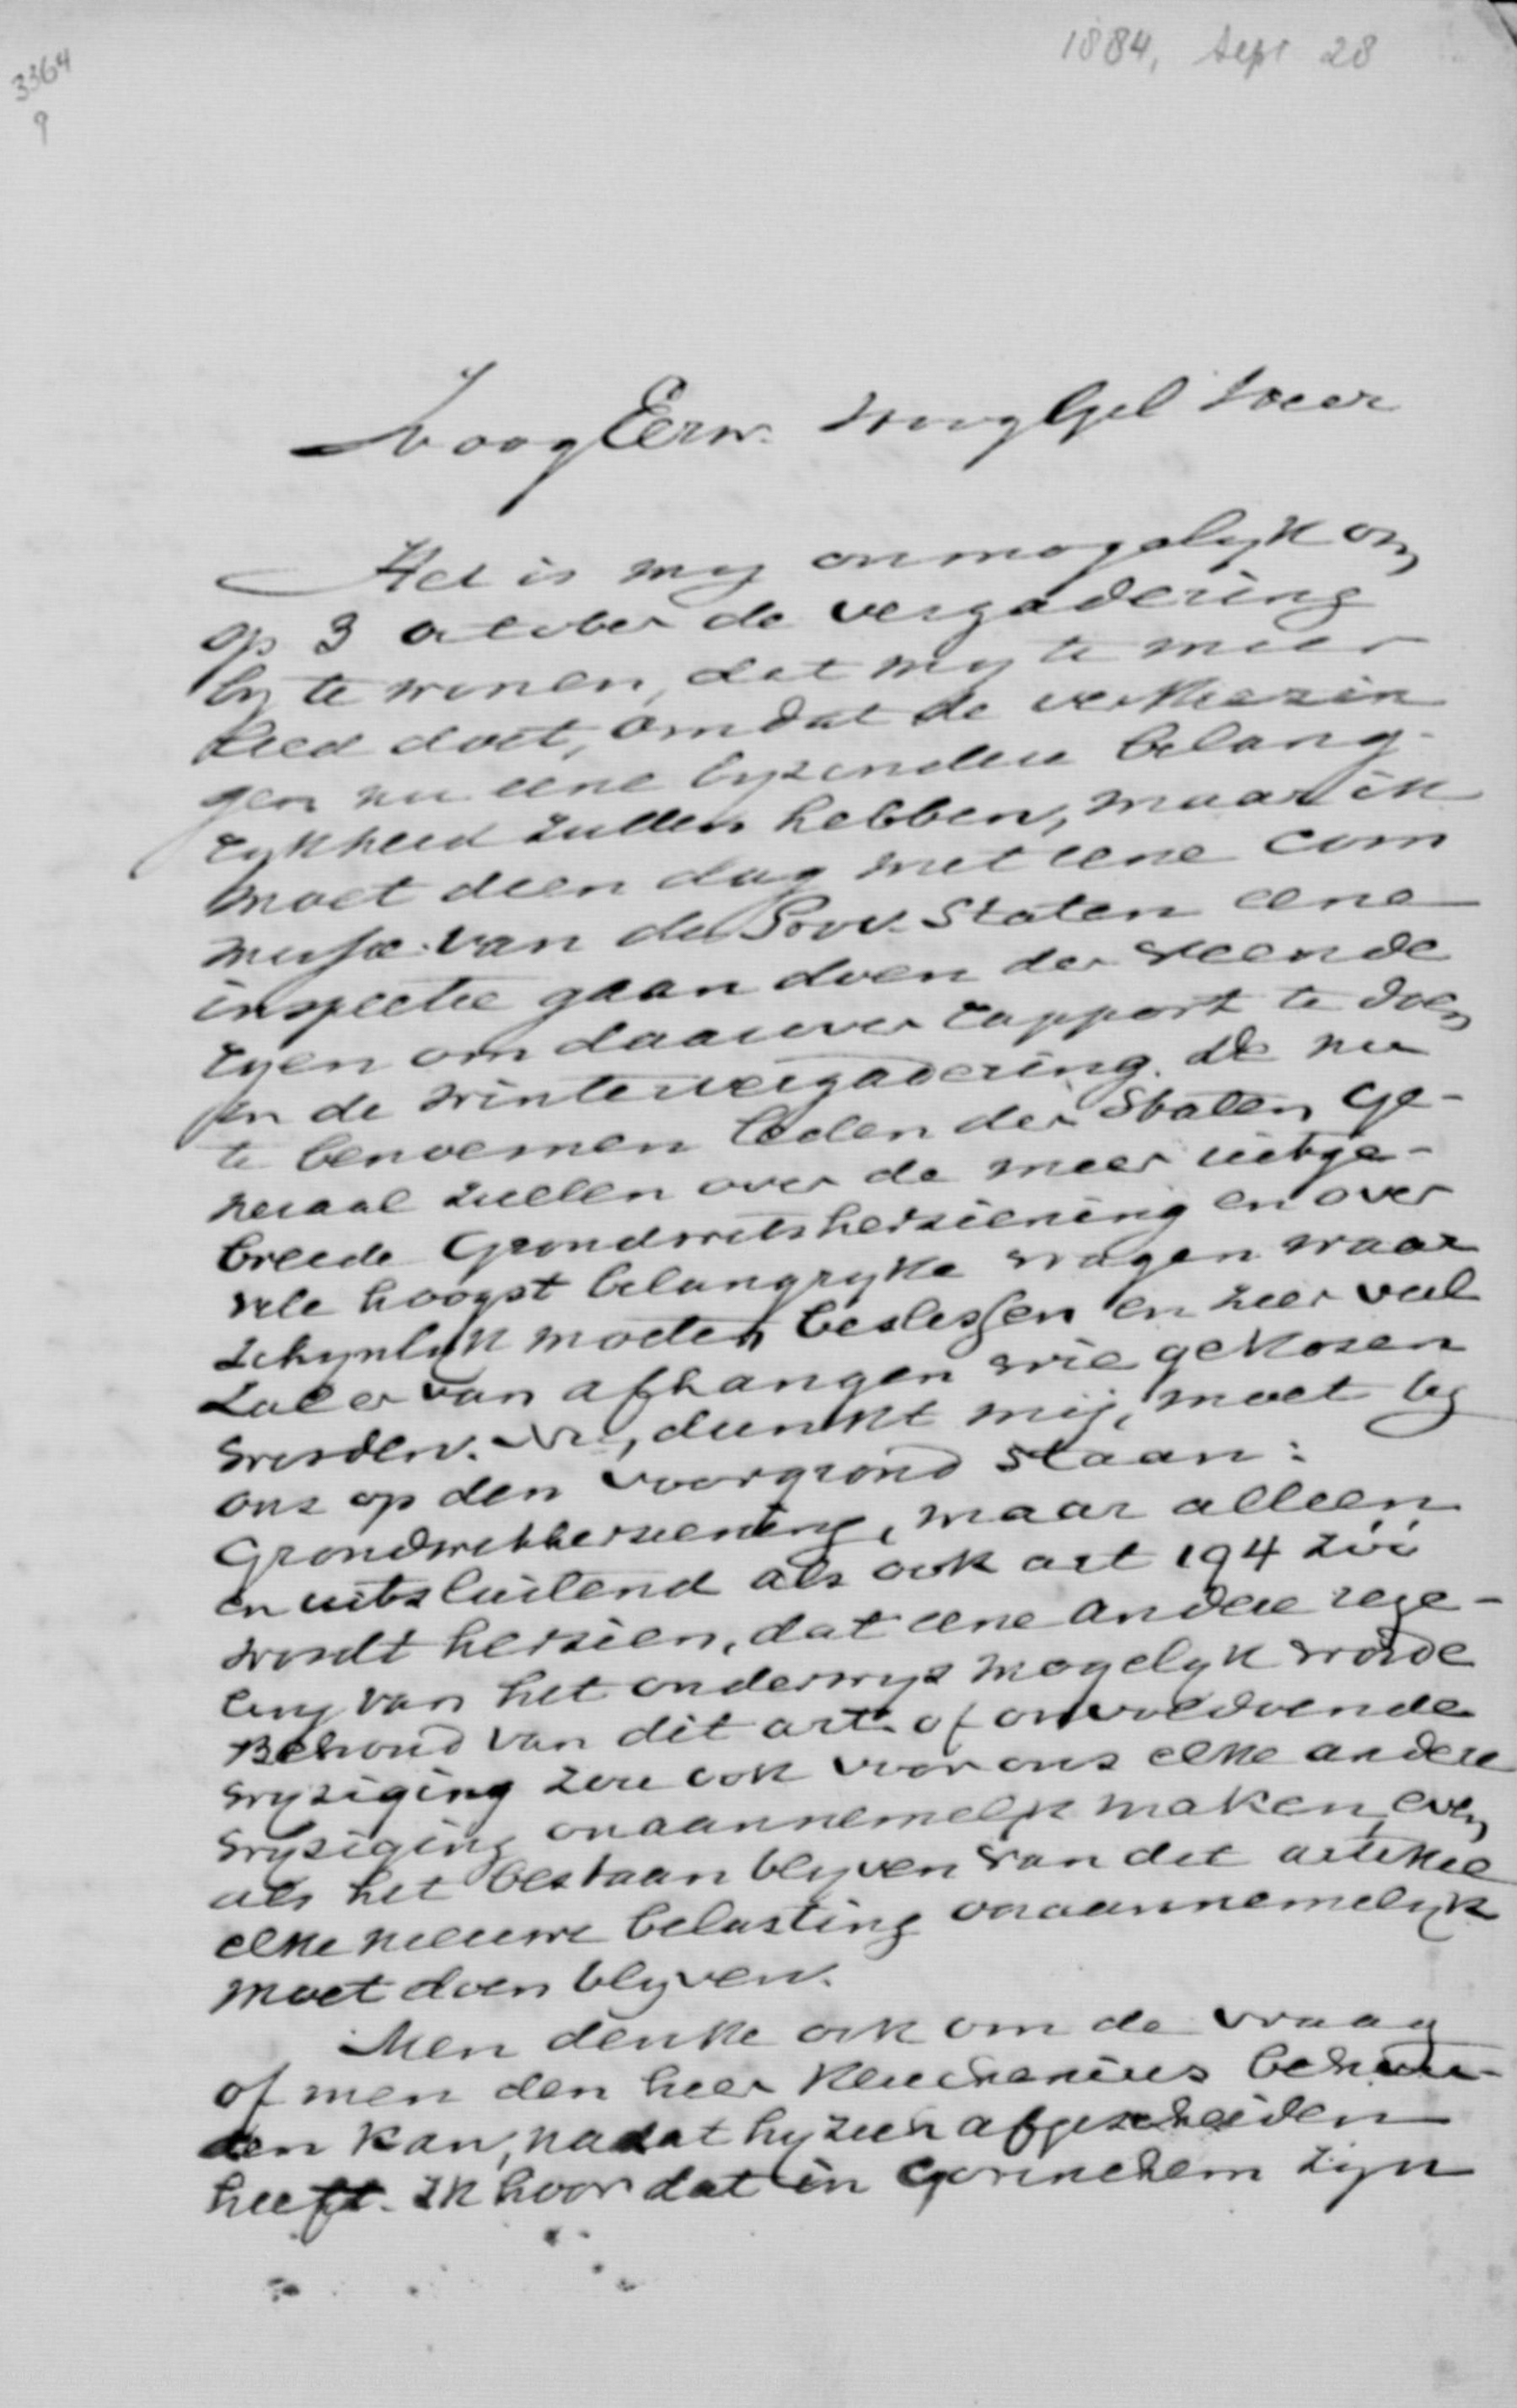 1884, Sept 28
3364
9
Hoog Eerw. Hoog Gel Heer
Het is my onmogelyk om
op 3 october de vergadering
by te wonen, dat my te meer
leed doet, omdat de verkiezin
gen nu eene byzondere belang-
rykheid zullen hebben, maar ik
moet dien dag met eene com
missie van de Prov. Staten eene
inspectie gaan doen der veende
ryen om daarover rapport te doen
in de wintervergadering. De nu
te benoemen leden der Staten Ge-
neraal zullen over de meer uitge-
breide Grondwetsherziening en over
vele hoogst belangryke vragen waar
schynlyk moeten beslissen en zeer veel
zal er van afhangen wie gekozen
worden. , dunkt mij, moet by
ons op den voorgrond staan:
Grondwetsherziening, maar alleen
en uitsluitend als ook art 194 zóó
wordt herzien, dat eene andere rege-
ling van het onderwys mogelyk worde
Behoud van dit art. of onvoldoende
wyziging zou ook voor ons elke andere
wyziging onaannemelyk maken, even
als het bestaan blyven van dit artikel
elke nieuwe belasting onaannemelyk
moet doen blyven.
Men denke ook om de vraag
of men den heer Keuchenius behou-
den kan, nadat hy zich afgescheiden
heeft. Ik hoor dat in Gorinchem zyn